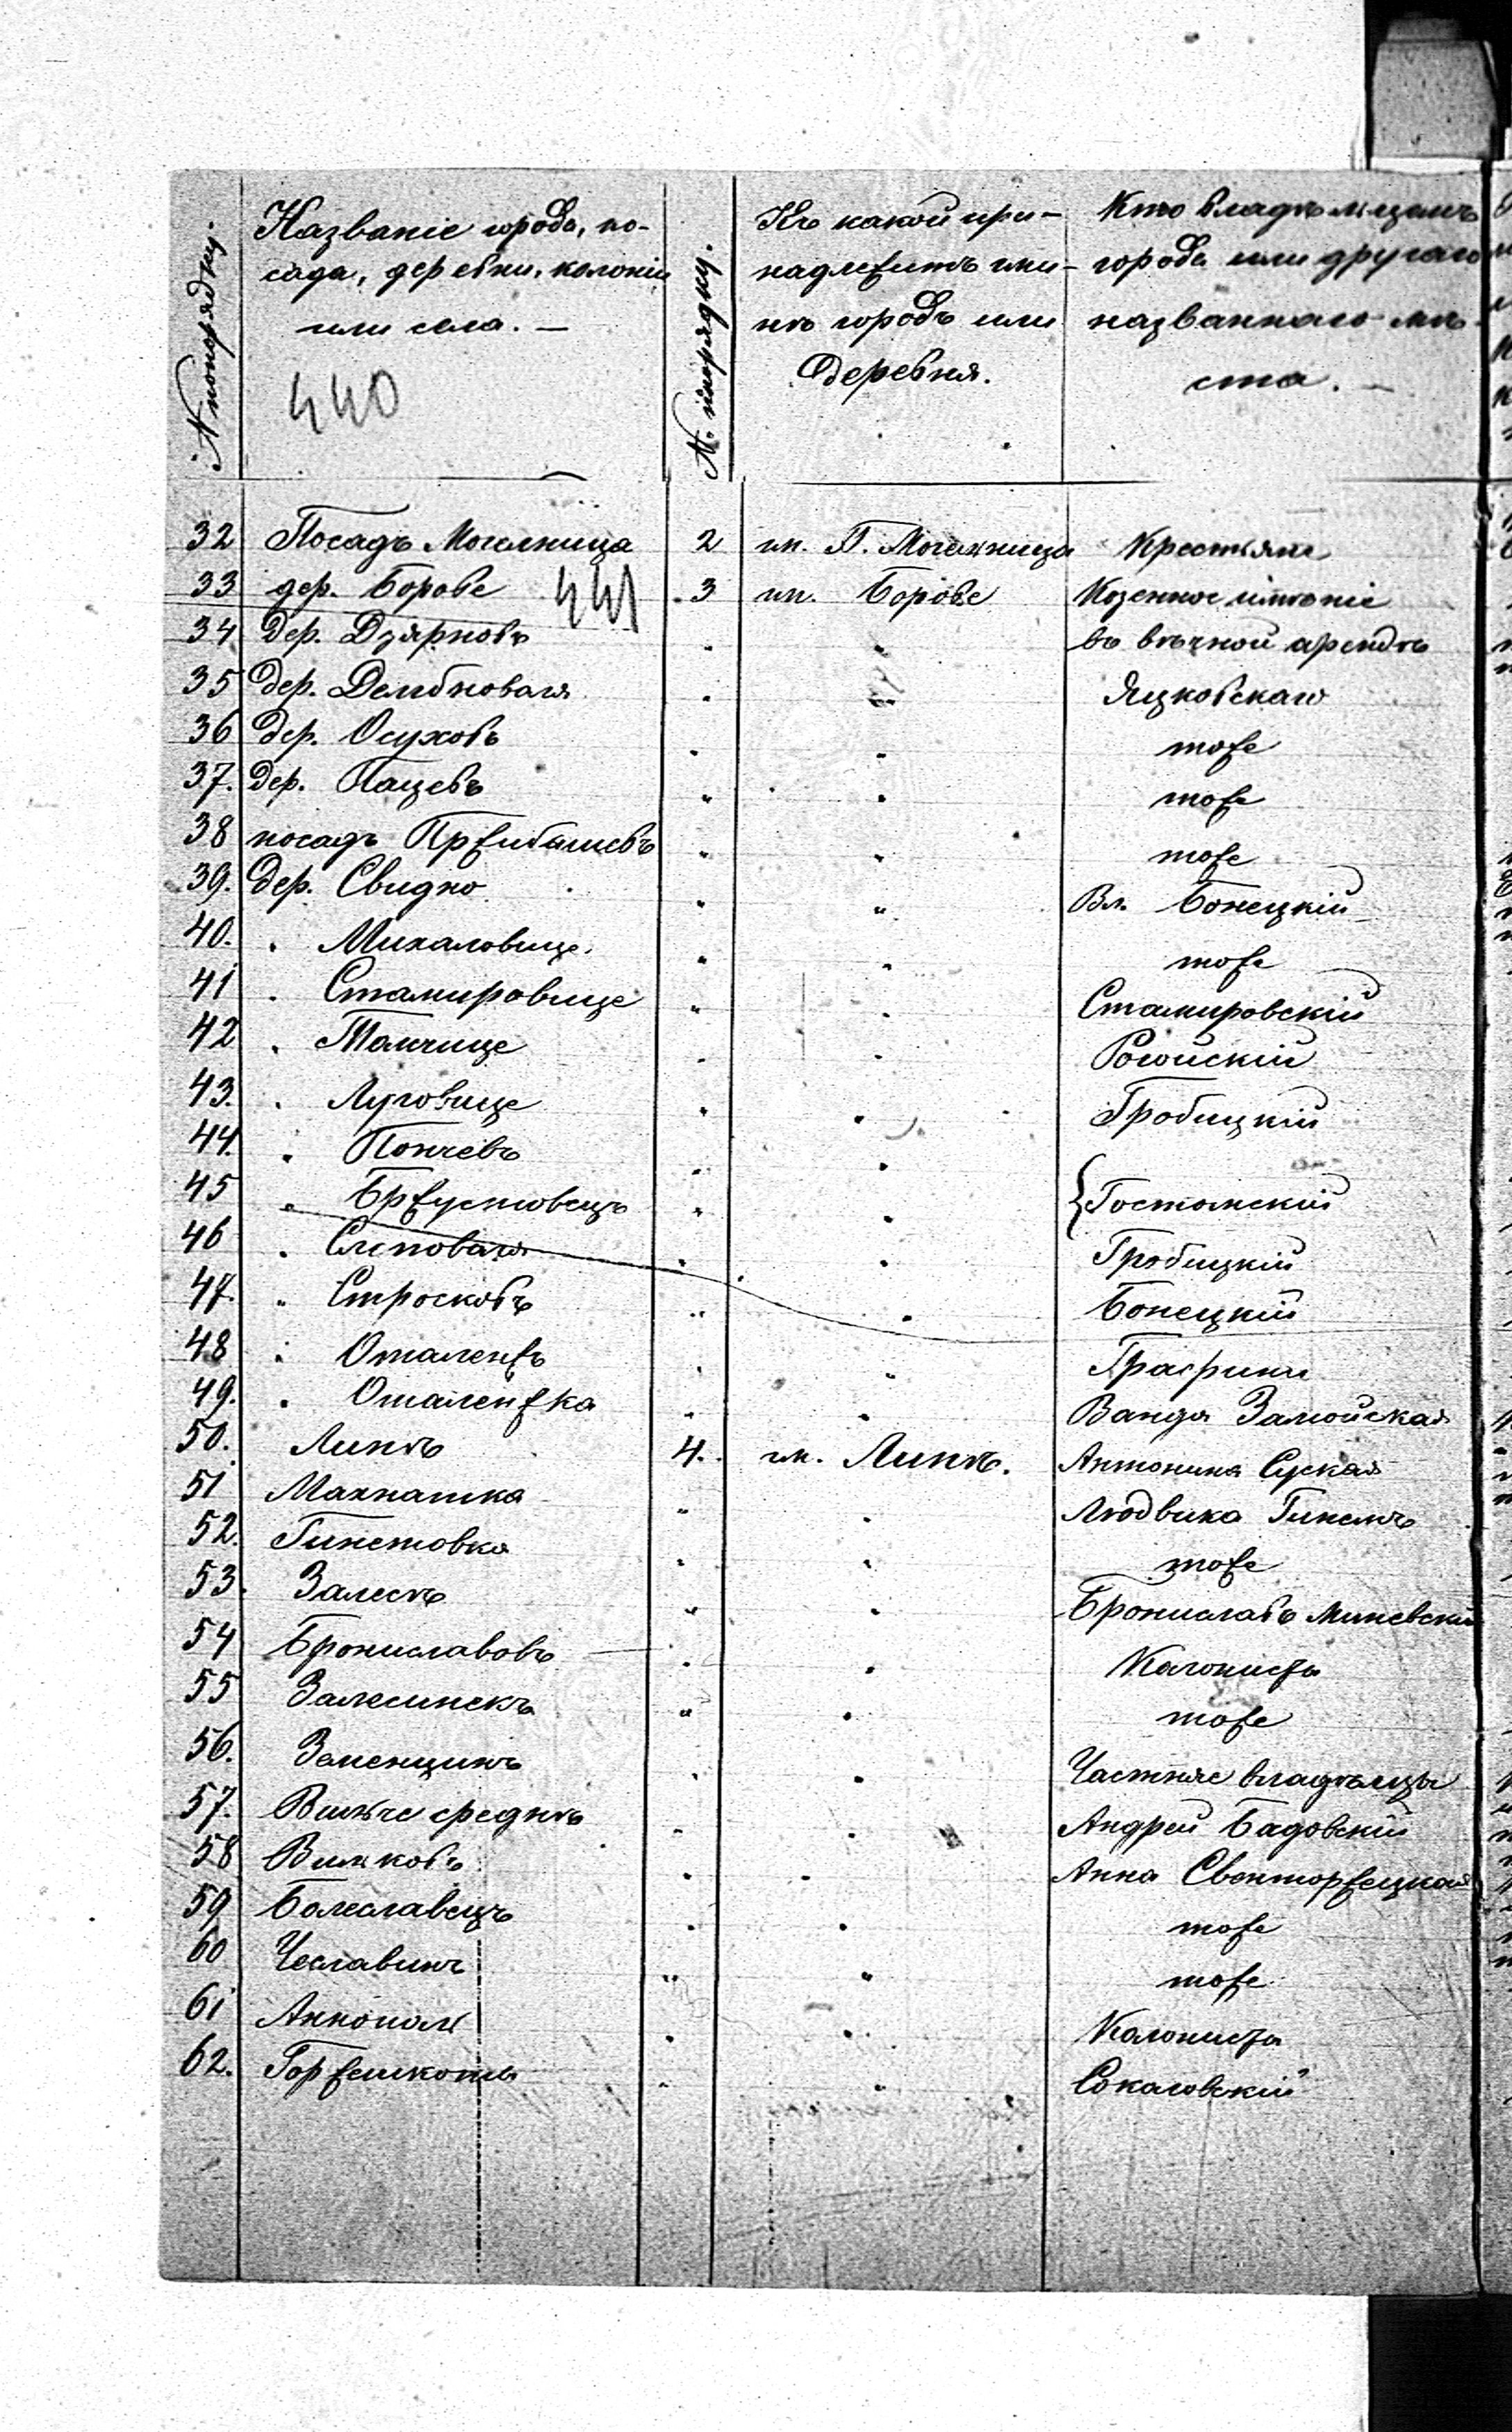 № по порядку.
Названіе города, по-
сада, деревни, колоніи
или села. —
440
№. по порядку.
Къ какой при-
надлежитъ гми-
нѣ городъ или
деревня.
Кто владѣльцемъ
города или другаго
названнаго мѣ-
ста. —
32 Посадъ Могельница 2 гм. П. Могельница Крестьяне
33 дер. Борове 441 3 гм. Борове Козенное имѣніе
34 дер. Дзярновъ " " въ вѣчной арендѣ
35 дер. Дембноваля " " Яцковскаго
36 дер. Осуховъ " " тоже
37. дер. Пацевъ " " тоже
38 посадъ Пржибышевъ " " тоже
39. дер. Свидно " " Вл. Бонецкій
40. " Михаловице. " " тоже
41 " Стамировице " " Стамировскій
42 " Томчице " " Рогойскій
43. " Луговице " " Гробицкій
44. " Пончевъ " "
45 " Бржустовецъ " " Гостомскій
46 " Слеповаля " " Гробицкій
47. " Стросковъ " " Бонецкій
48 " Оталенжъ " " Графини
49. " Оталенжка " " Ванда Замойская
50. Липѣ 4. гм. Липѣ. Антонина Суская
51 Махнатка " " Людвика Гинемъ
52. Гинетовка " " тоже
53. Залесѣ " " Брониславъ Миневскій
54 Брониславовъ " " Колонисты
55 Залесинекъ " " тоже
56. Земенцинъ " " Частные владѣльцы
57. Вильче среднѣ " " Андрей Бадовскій
58 Вильковъ " " Анна Свенторжецкая
59 Болеславецъ " " тоже
60 Чеславинъ " " тоже
61 Аннополь " " Колонисты
62. Горжешконы " " Сокаловскій